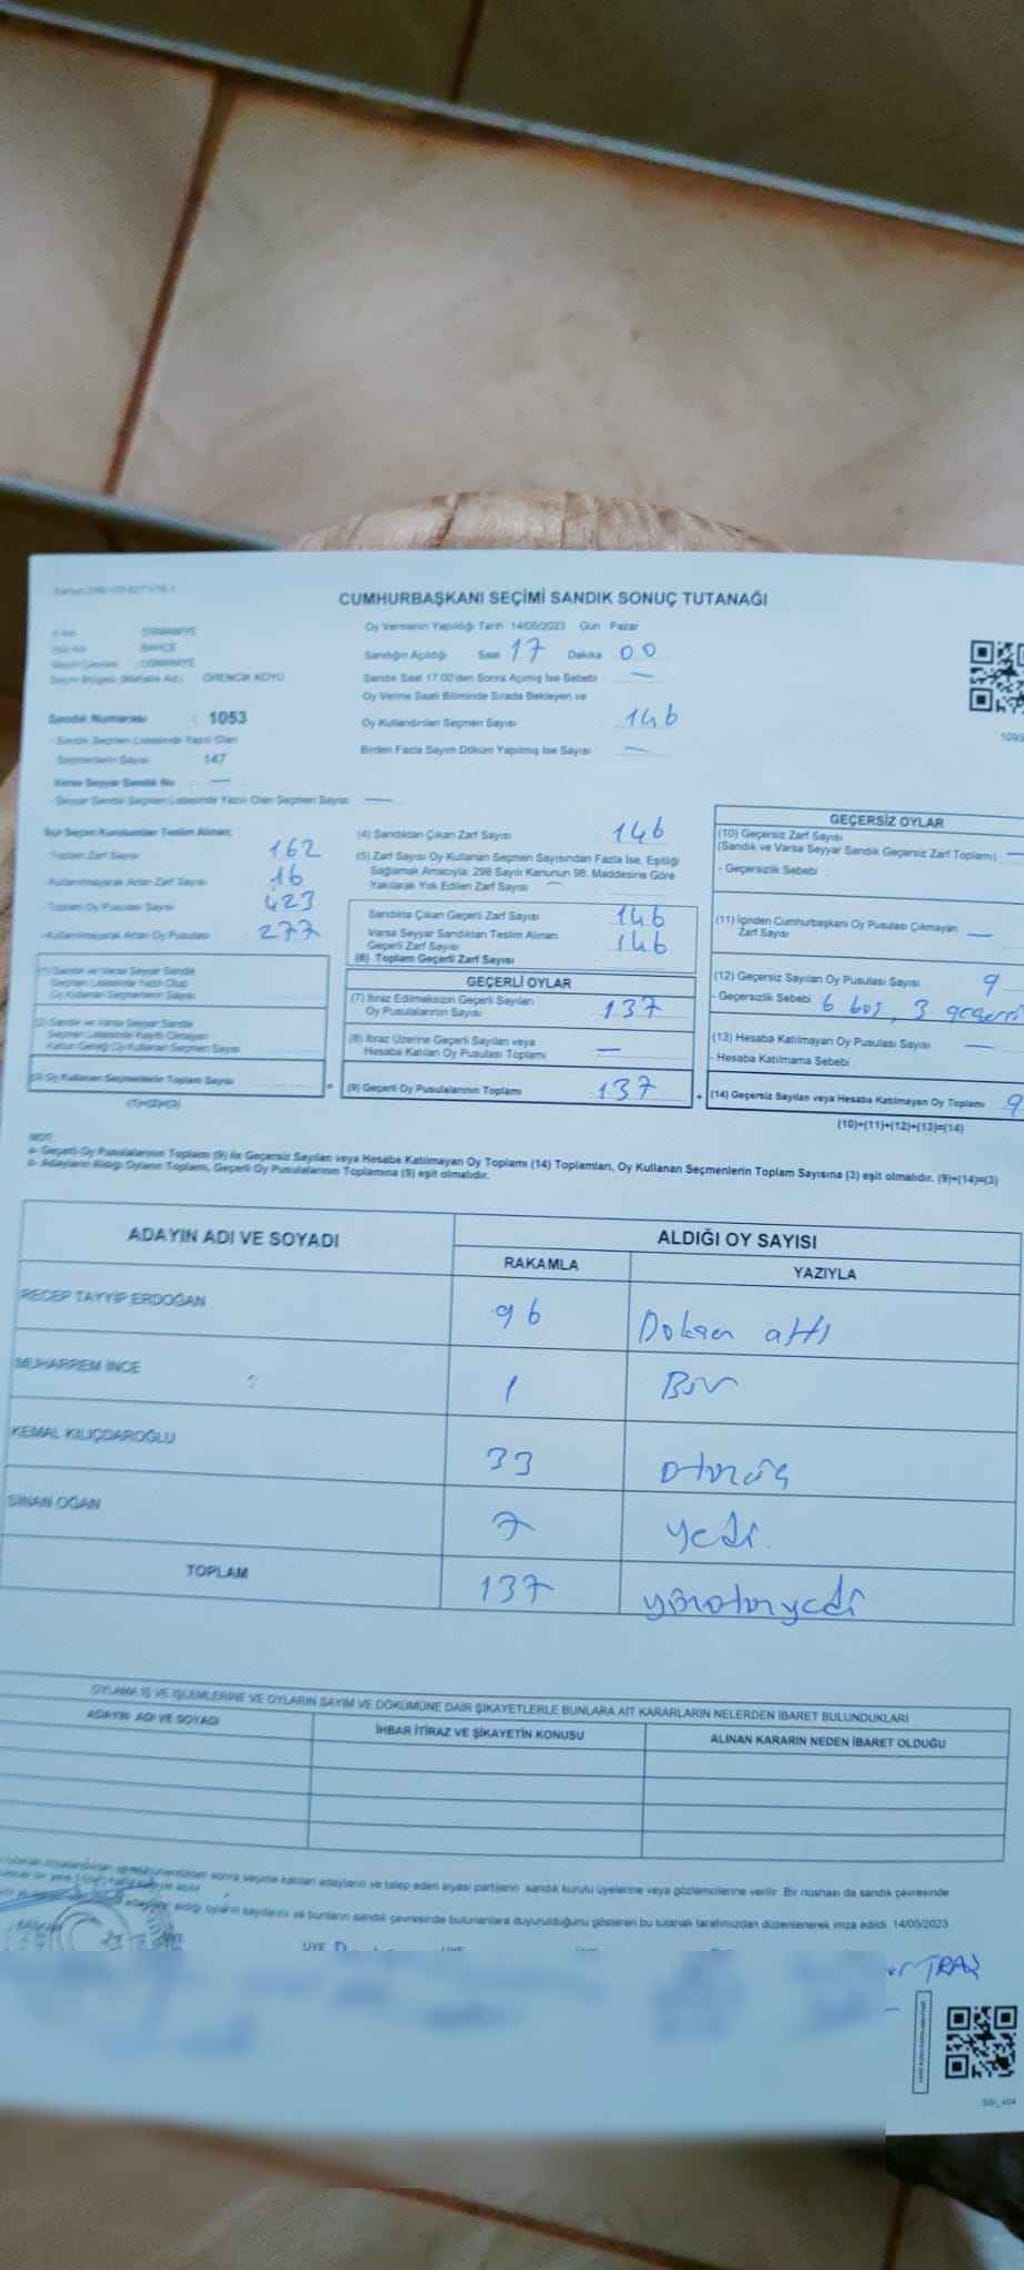 CUMHURBAŞKANI SEÇİMİ SANDIK SONUÇ TUTANAĞI
Oy Vermenin Yapıldığı Tarih 14/05/2023 Gün Pazar
OSMANİYE
BAHÇE
OSMANİYE
Sandığın Açıldığı Saat 17 Dakika 00
Sandık Saat 17.00'den Sonra Açılmış İse Sebebi —
Oy Verme Saati Bitiminde Sırada Bekleyen ve
Oy Kullandırılan Seçmen Sayısı 146
Birden Fazla Sayım Döküm Yapılmış İse Sayısı —
Sandık Numarası : 1053
- Sandık Seçmen Listesinde Yazılı Olan
Seçmenlerin Sayısı 147
Varsa Seyyar Sandık No : —
- Seyyar Sandık Seçmen Listesinde Yazılı Olan Seçmen Sayısı —
İlçe Seçim Kurulundan Teslim Alınan:
Toplam Zarf Sayısı 162
-Kullanılmayarak Artan Zarf Sayısı 16
-Toplam Oy Pusulası Sayısı 423
-Kullanılmayarak Artan Oy Pusulası 277
(1) Sandık ve Varsa Seyyar Sandık
Seçmen Listesinde Yazılı Olup
Oy Kullanan Seçmenlerin Sayısı
(3) Oy Kullanan Seçmenlerin Toplam Sayısı
(1)+(2)=(3)
(4) Sandıktan Çıkan Zarf Sayısı 146
(5) Zarf Sayısı Oy Kullanan Seçmen Sayısından Fazla İse, Eşitliği
Sağlamak Amacıyla; 298 Sayılı Kanunun 98. Maddesine Göre
Yakılarak Yok Edilen Zarf Sayısı —
Sandıkta Çıkan Geçerli Zarf Sayısı 146
Varsa Seyyar Sandıktan Teslim Alınan
Geçerli Zarf Sayısı 146
(6) Toplam Geçerli Zarf Sayısı
GEÇERLİ OYLAR
(7) İtiraz Edilmeksizin Geçerli Sayılan
Oy Pusulalarının Sayısı 137
(8) İtiraz Üzerine Geçerli Sayılan veya
Hesaba Katılan Oy Pusulası Toplamı —
(9) Geçerli Oy Pusulalarının Toplamı 137
GEÇERSİZ OYLAR
(10) Geçersiz Zarf Sayısı
(Sandık ve Varsa Seyyar Sandık Geçersiz Zarf Toplamı) —
- Geçersizlik Sebebi
(11) İçinden Cumhurbaşkanı Oy Pusulası Çıkmayan —
Zarf Sayısı
(12) Geçersiz Sayılan Oy Pusulası Sayısı 9
- Geçersizlik Sebebi 6 boş, 3
(13) Hesaba Katılmayan Oy Pusulası Sayısı —
- Hesaba Katılmama Sebebi
(14) Geçersiz Sayılan veya Hesaba Katılmayan Oy Toplamı 9
(10)+(11)+(12)+(13)=(14)
NOT:
a- Geçerli Oy Pusulalarının Toplamı (9) ile Geçersiz Sayılan veya Hesaba Katılmayan Oy Toplamı (14) Toplamları, Oy Kullanan Seçmenlerin Toplam Sayısına (3) eşit olmalıdır. (9)+(14)=(3)
b- Adayların Aldığı Oyların Toplamı, Geçerli Oy Pusulalarının Toplamına (9) eşit olmalıdır.
ADAYIN ADI VE SOYADI
ALDIĞI OY SAYISI
RAKAMLA YAZIYLA
RECEP TAYYİP ERDOĞAN 96 Doksan altı
MUHARREM İNCE 1 Bir
KEMAL KILIÇDAROĞLU 33 otuzüç
SİNAN OĞAN 7 yedi
TOPLAM 137 yüzotuzyedi
OYLAMA İŞ VE İŞLEMLERİNE VE OYLARIN SAYIM VE DÖKÜMÜNE DAİR ŞİKAYETLERLE BUNLARA AİT KARARLARIN NELERDEN İBARET BULUNDUKLARI
ADAYIN ADI VE SOYADI İHBAR İTİRAZ VE ŞİKAYETİN KONUSU ALINAN KARARIN NEDEN İBARET OLDUĞU
sonra seçime katılan adayların ve talep eden siyasi partilerin sandık kurulu üyelerine veya gözlemcilerine verilir. Bir nüshası da sandık çevresinde
aldığı oyların sayılarını ve bunların sandık çevresinde bulunanlara duyurulduğunu gösteren bu tutanak tarafımızdan düzenlenerek imza edildi. 14/05/2023
ÜYE